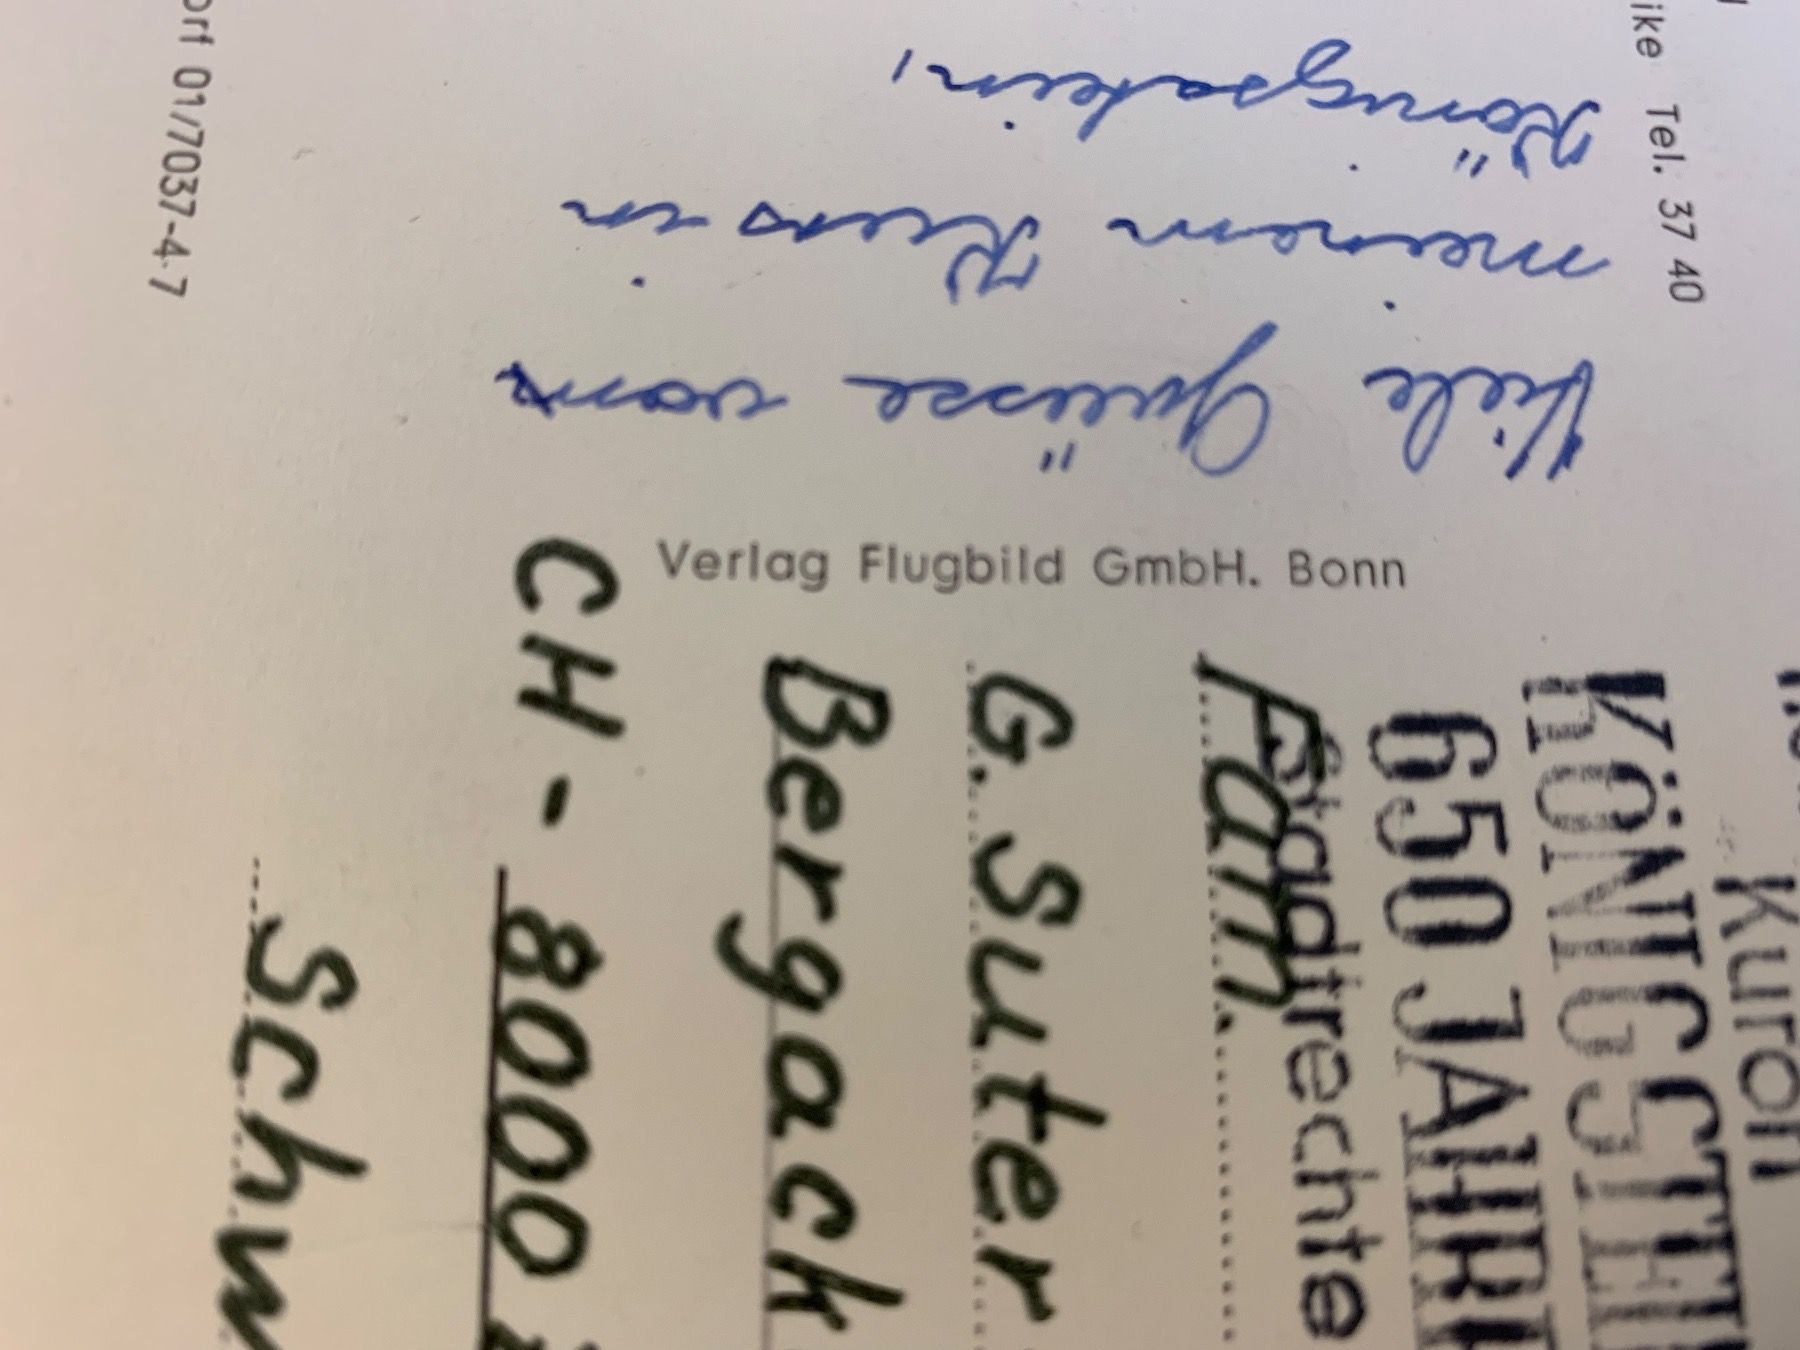 Viele Grüsse vom
meinem Kurs in
Königstein,
Verlag Flugbild GmbH. Bonn
KÖNIGSTEI
650 JAHRE
Stadtrechte
Fam.
G. Suter
Bergack
CH-8000
Schw
Kuron
Tel. 37 40
01/7037-4-7